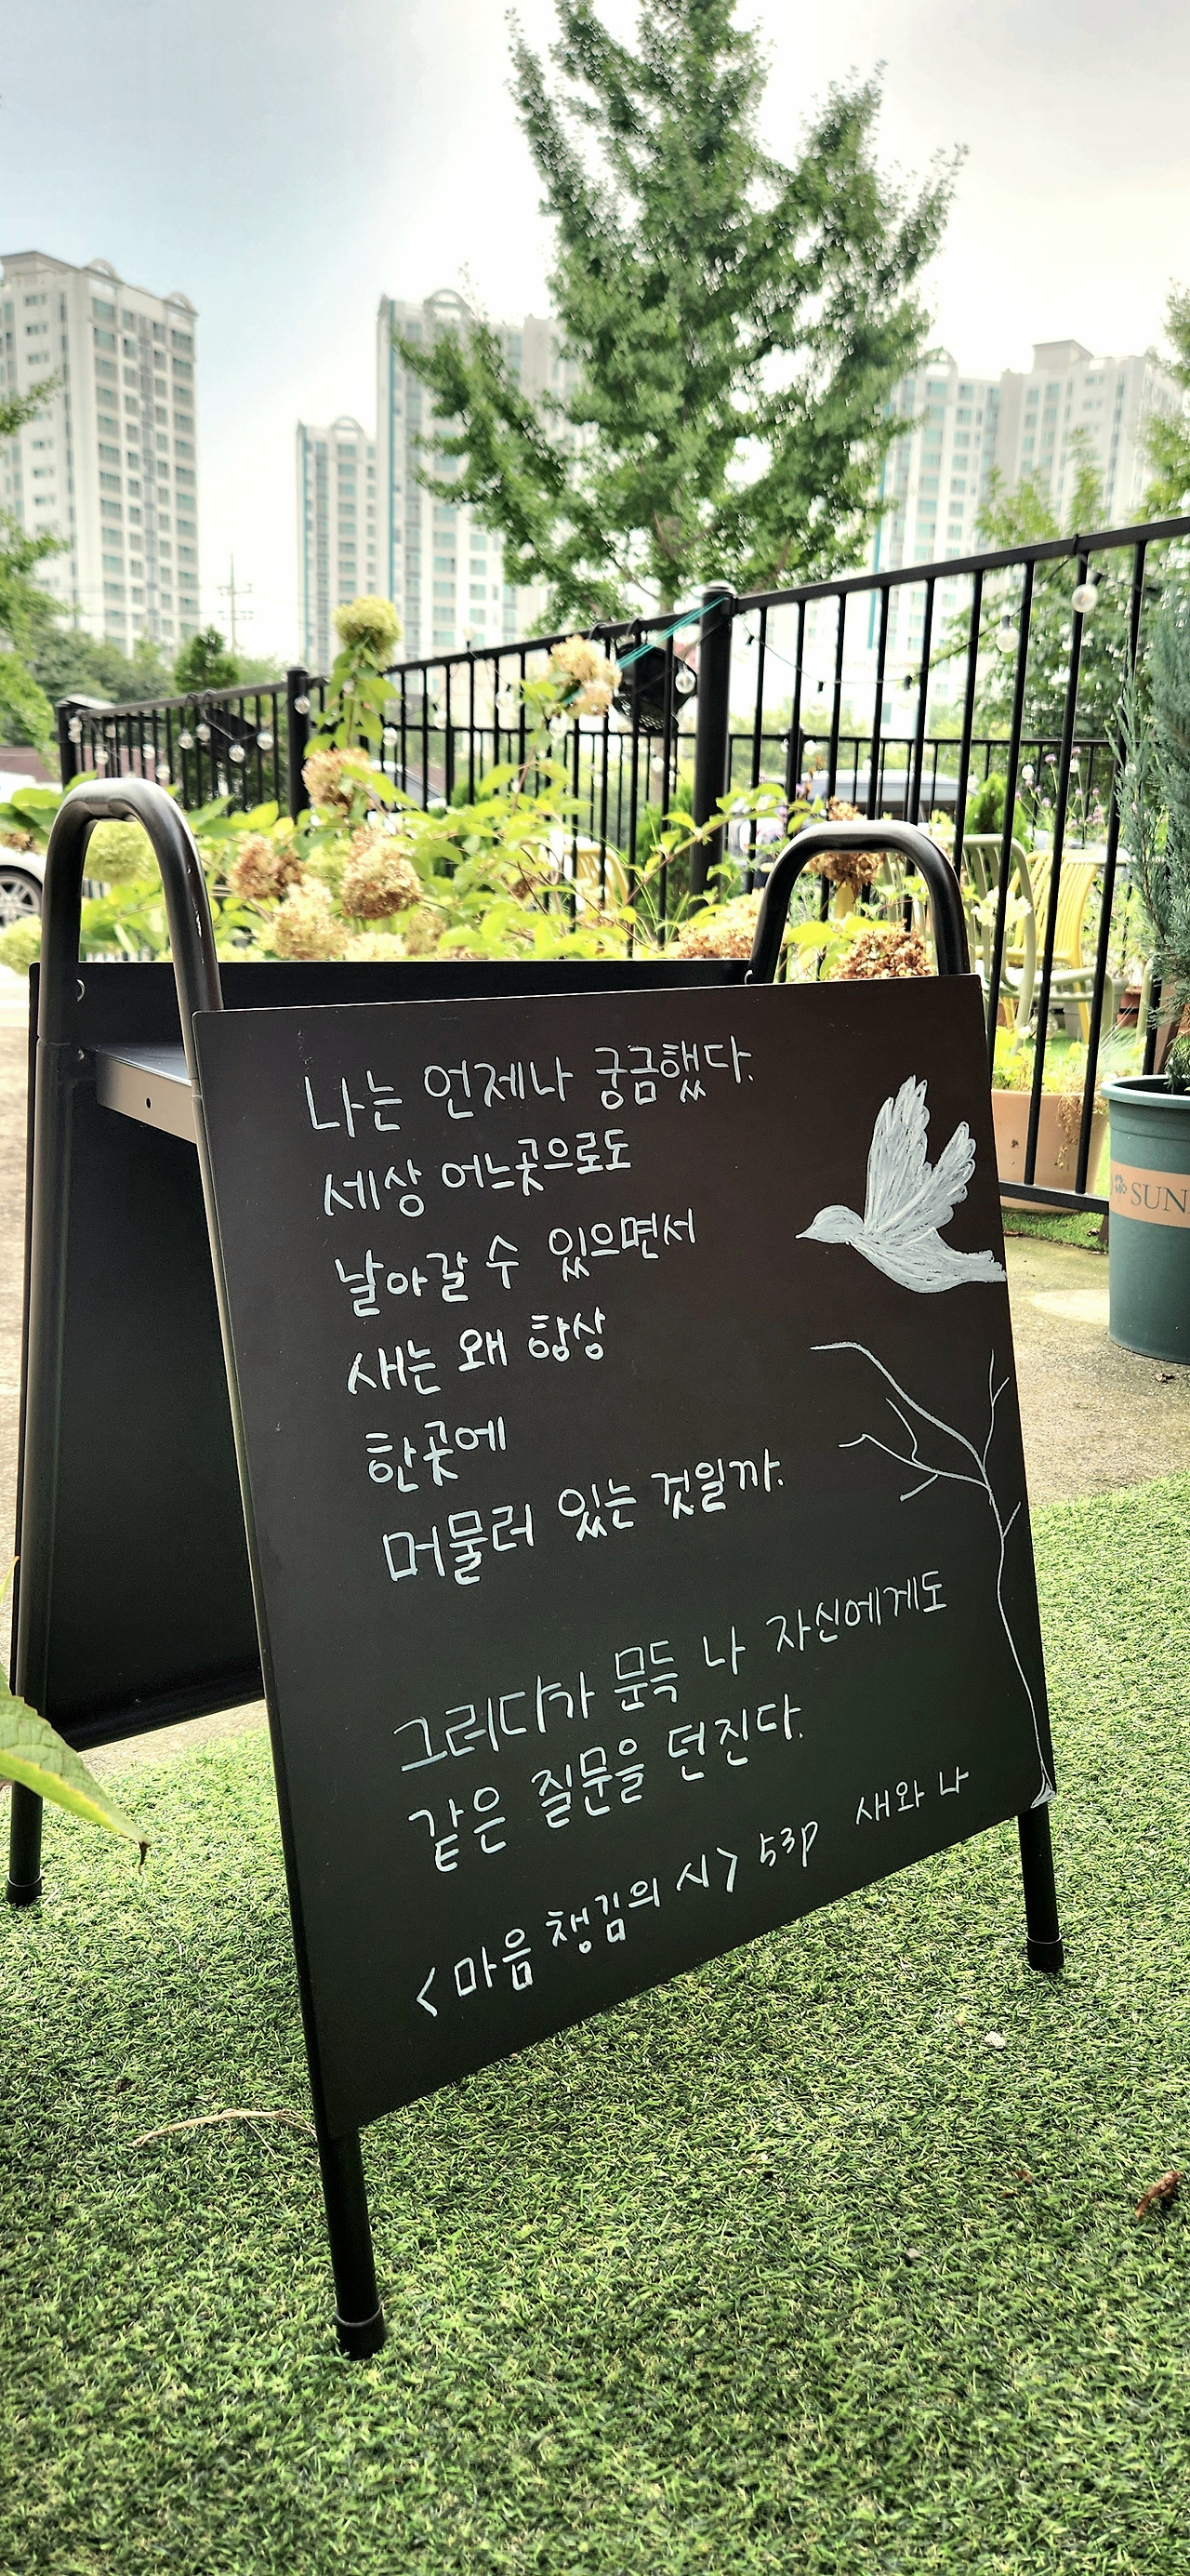 나는 언제나 궁금했다.
세상 어느곳으로도
날아갈 수 있으면서
새는 왜 항상
한곳에
머물러 있는 것일까.
그러다가 문득 나 자신에게도
같은 질문을 던진다.
<마음 챙김의 시> 53p 새와 나
SUN